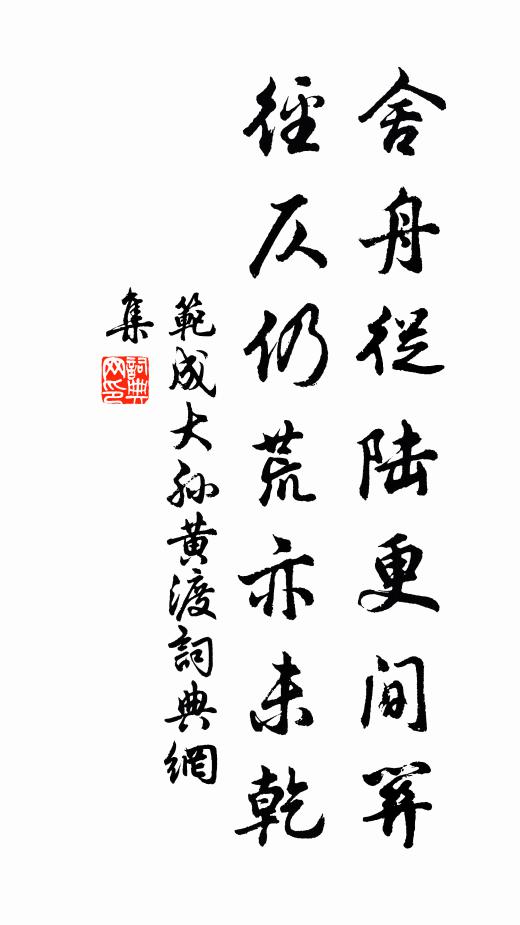 舍舟從陆更間關
徑仄仍荒亦未乾
範成大孫黄渡詞典網
集
詞典网印